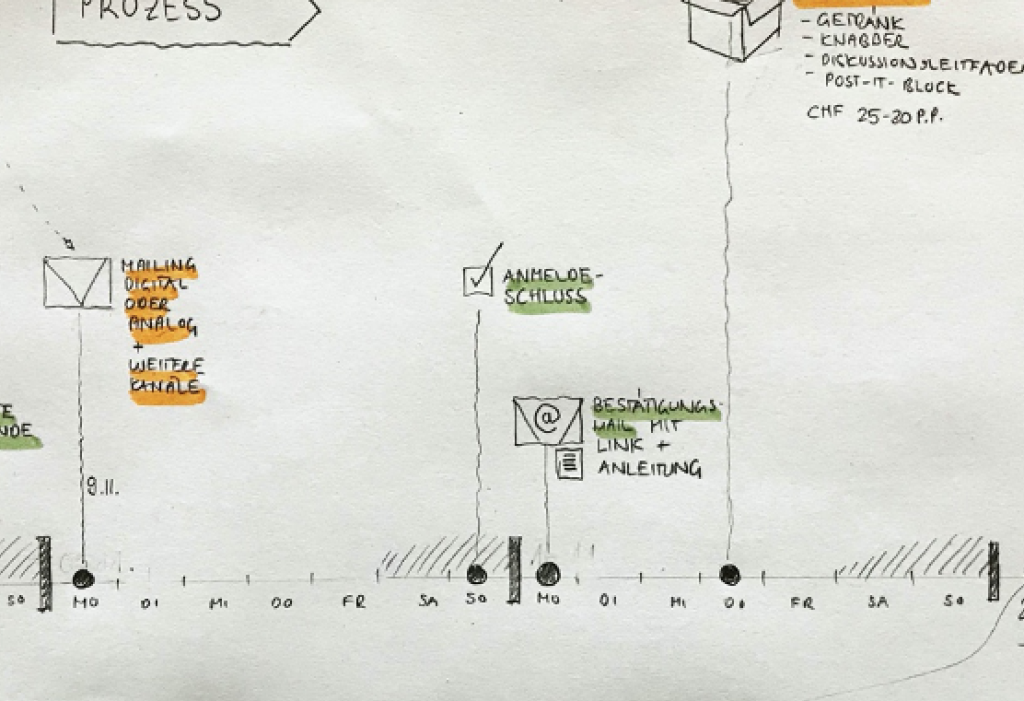 PROZESS
- GETRÄNK
- KNABBER
- DISKUSSIONSLEITFADEN
- POST-IT-BLOCK
CHF 25-30 P.P.
MAILING
DIGITAL
ODER
ANALOG
+
WEITERE
KANÄLE
ANMELDE-
SCHLUSS
@
BESTÄTIGUNGS-
MAIL MIT
LINK +
ANLEITUNG
9.11.
SO MO DI MI DO FR SA SO MO DI MI DO FR SA SO